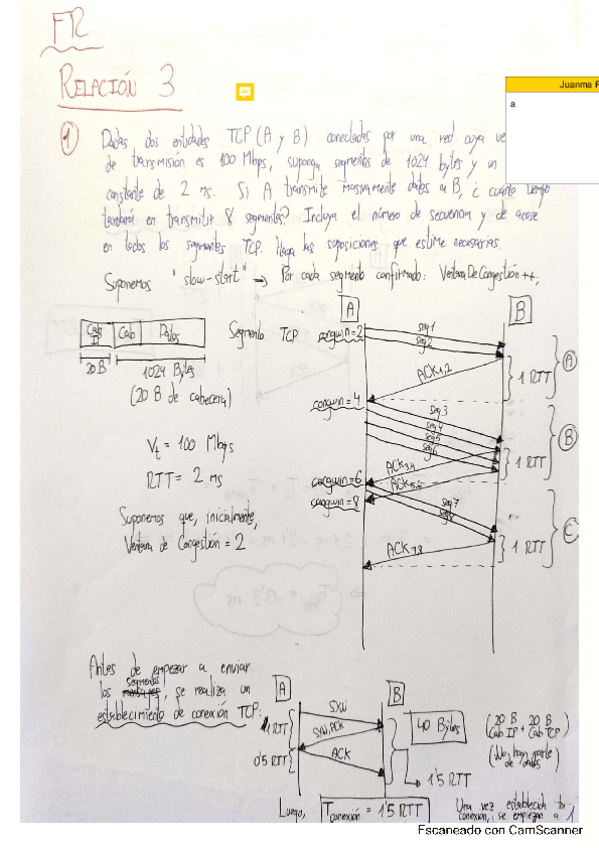 FR
RELACIÓN 3
Juanma
a
1 Dadas dos entidades TCP (A y B) conectadas por una red cuya ve
de transmisión es 100 Mbps, suponga segmentos de 1024 bytes y un
constante de 2 ms. Si A transmite masivamente datos a B, ¿cuánto tiempo
tardará en transmitir 8 segmentos? Incluya el número de secuencia y de acuse
en todos los segmentos TCP. Haga las suposiciones que estime necesarias.
Suponemos "slow-start" → Por cada segmento confirmado: VentanaDeCongestión++;
A
B
Cab IP
Cab
Datos
Segmento TCP
20B
1024 Bytes
(20 B de cabecera)
congwin=2
seg1
seg2
ACK1,2
1 RTT
A
congwin=4
seg3
seg4
seg5
seg6
ACK3,4
ACK5,6
1 RTT
B
congwin=6
congwin=8
seg7
seg8
ACK7,8
1 RTT
C
Vt = 100 Mbps
RTT = 2 ms
Suponemos que, inicialmente,
Ventana de Congestión = 2
Antes de empezar a enviar
los segmentos, se realiza un
establecimiento de conexión TCP:
A
B
SYN
SYN,ACK
ACK
1 RTT
0'5 RTT
40 Bytes
(20 B Cab IP + 20 B Cab TCP)
(No hay parte de datos)
1'5 RTT
Luego, Tconexión = 1'5 RTT
Una vez establecida la
conexión, se empiezan a
Escaneado con CamScanner